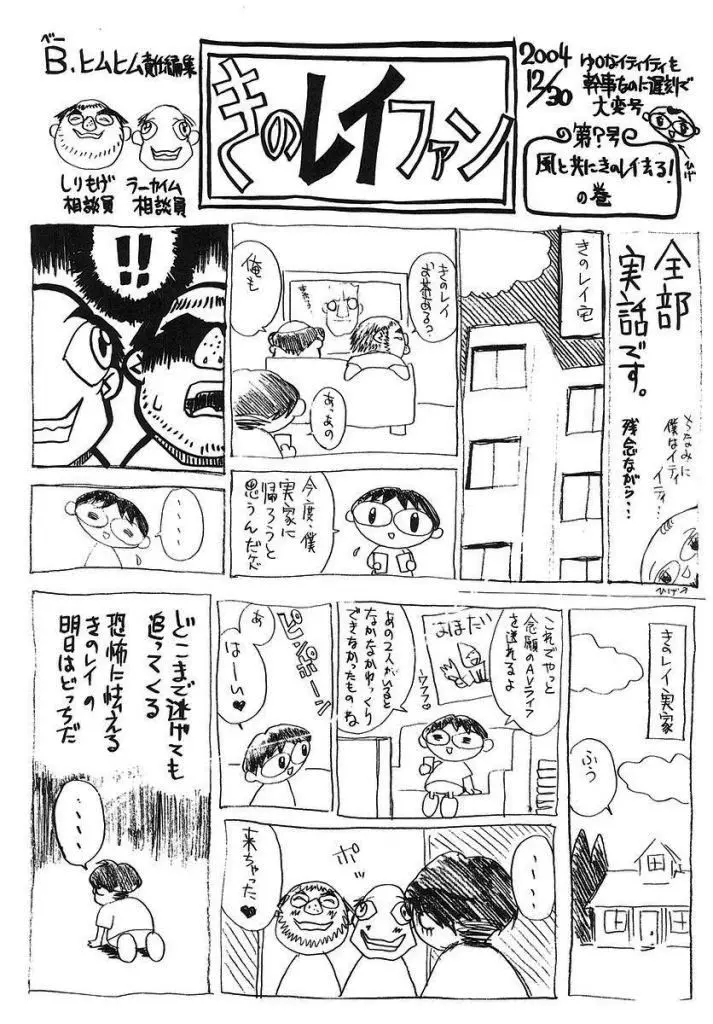 べー
B.ヒムヒム責任編集
しりもげ
相談員
ラーカイム
相談員
きのレイファン
2004
12/30
幹事なのに遅刻で
大変号
ひげ
第?号
風と共にきのレイ去る!
の巻
全部
実話です。
ちなみに
僕はイティ
イティ…
残念ながら…
ひげ
きのレイ宅
きのレイ
お茶まだ?
俺も
あっあの
!!
今度、僕
実家に
帰ろうと
思うんだケド
・・・・
きのレイ実家
ふぅ
これでやっと
念願のAVライフ
を送れるよ
あの2人がいると
なかなかゆっくり
できなかったものね
ウフフ
ピンポーン
あ
はーい♥
・・・・
ポッ
来ちゃった♥
どこまで逃げても
追ってくる
恐怖に怯える
きのレイの
明日はどっちだ
・・・・